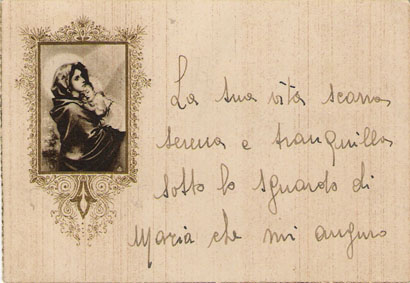 La sua vita scorra
serena e tranquilla
sotto lo sguardo di
Maria che mi auguro